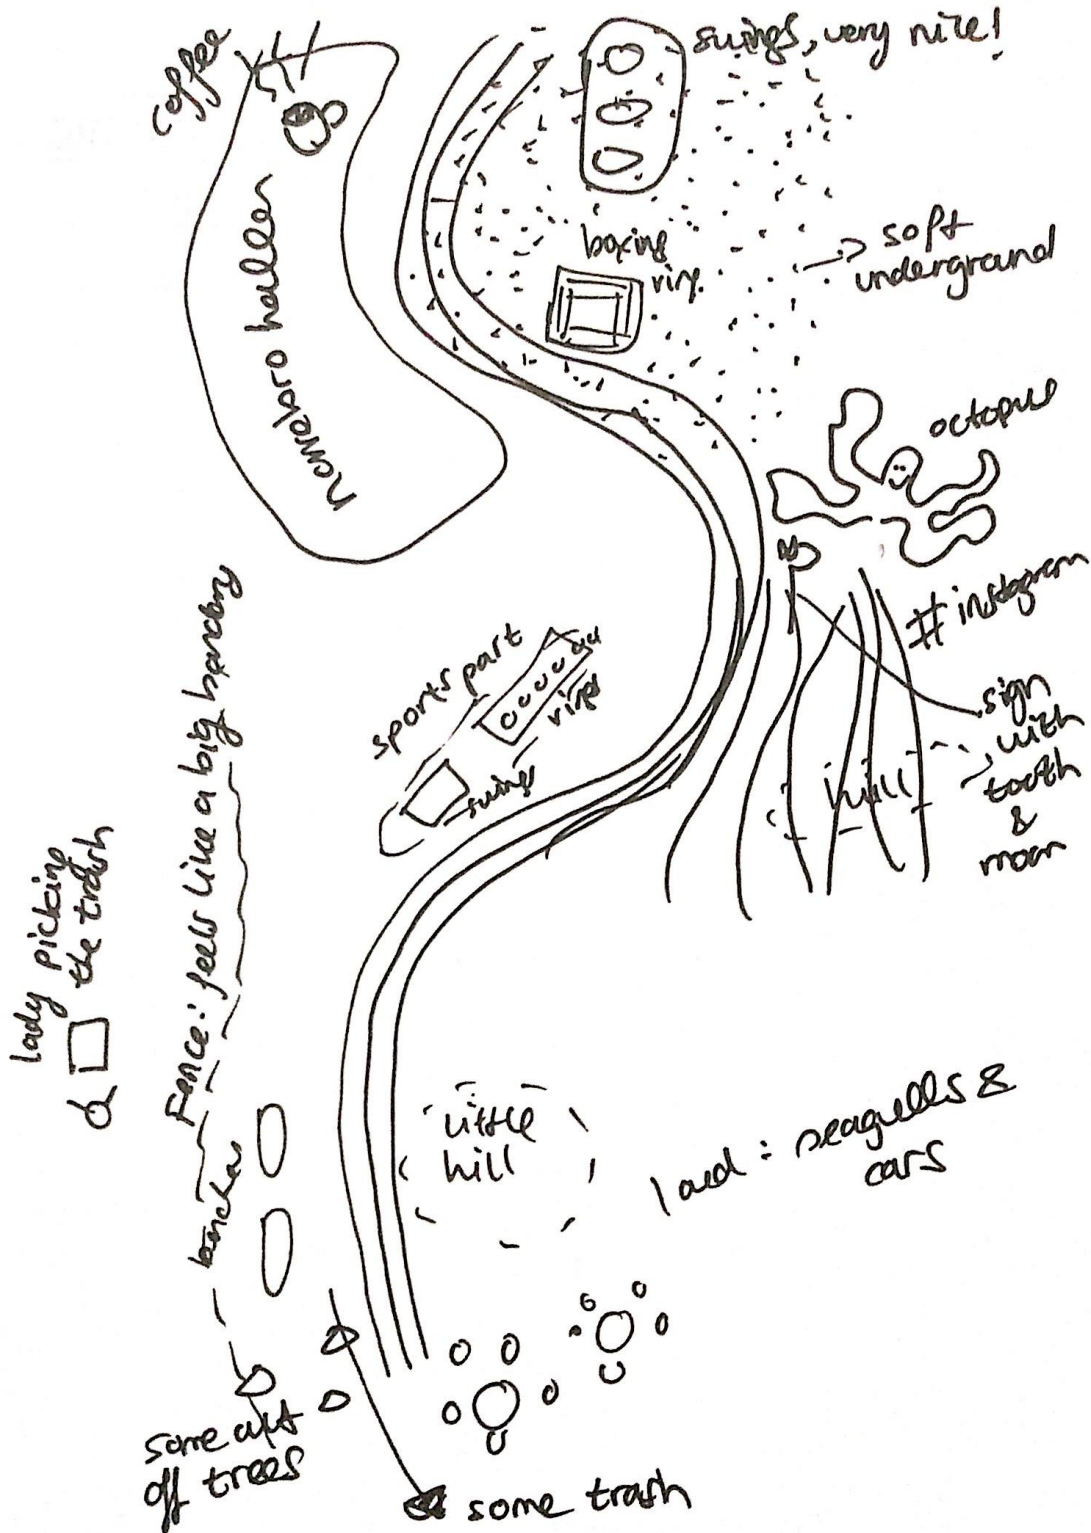 coffee
swings, very nice!
boxing
ring
soft
underground
octopus
# instagram
sign
with
tooth
&
moon
hill
sports part
rings
swings
Fence: feels like a big boundary
lady picking
the trash
benches
little
hill
loud : seagulls &
cars
some cut
off trees
some trash